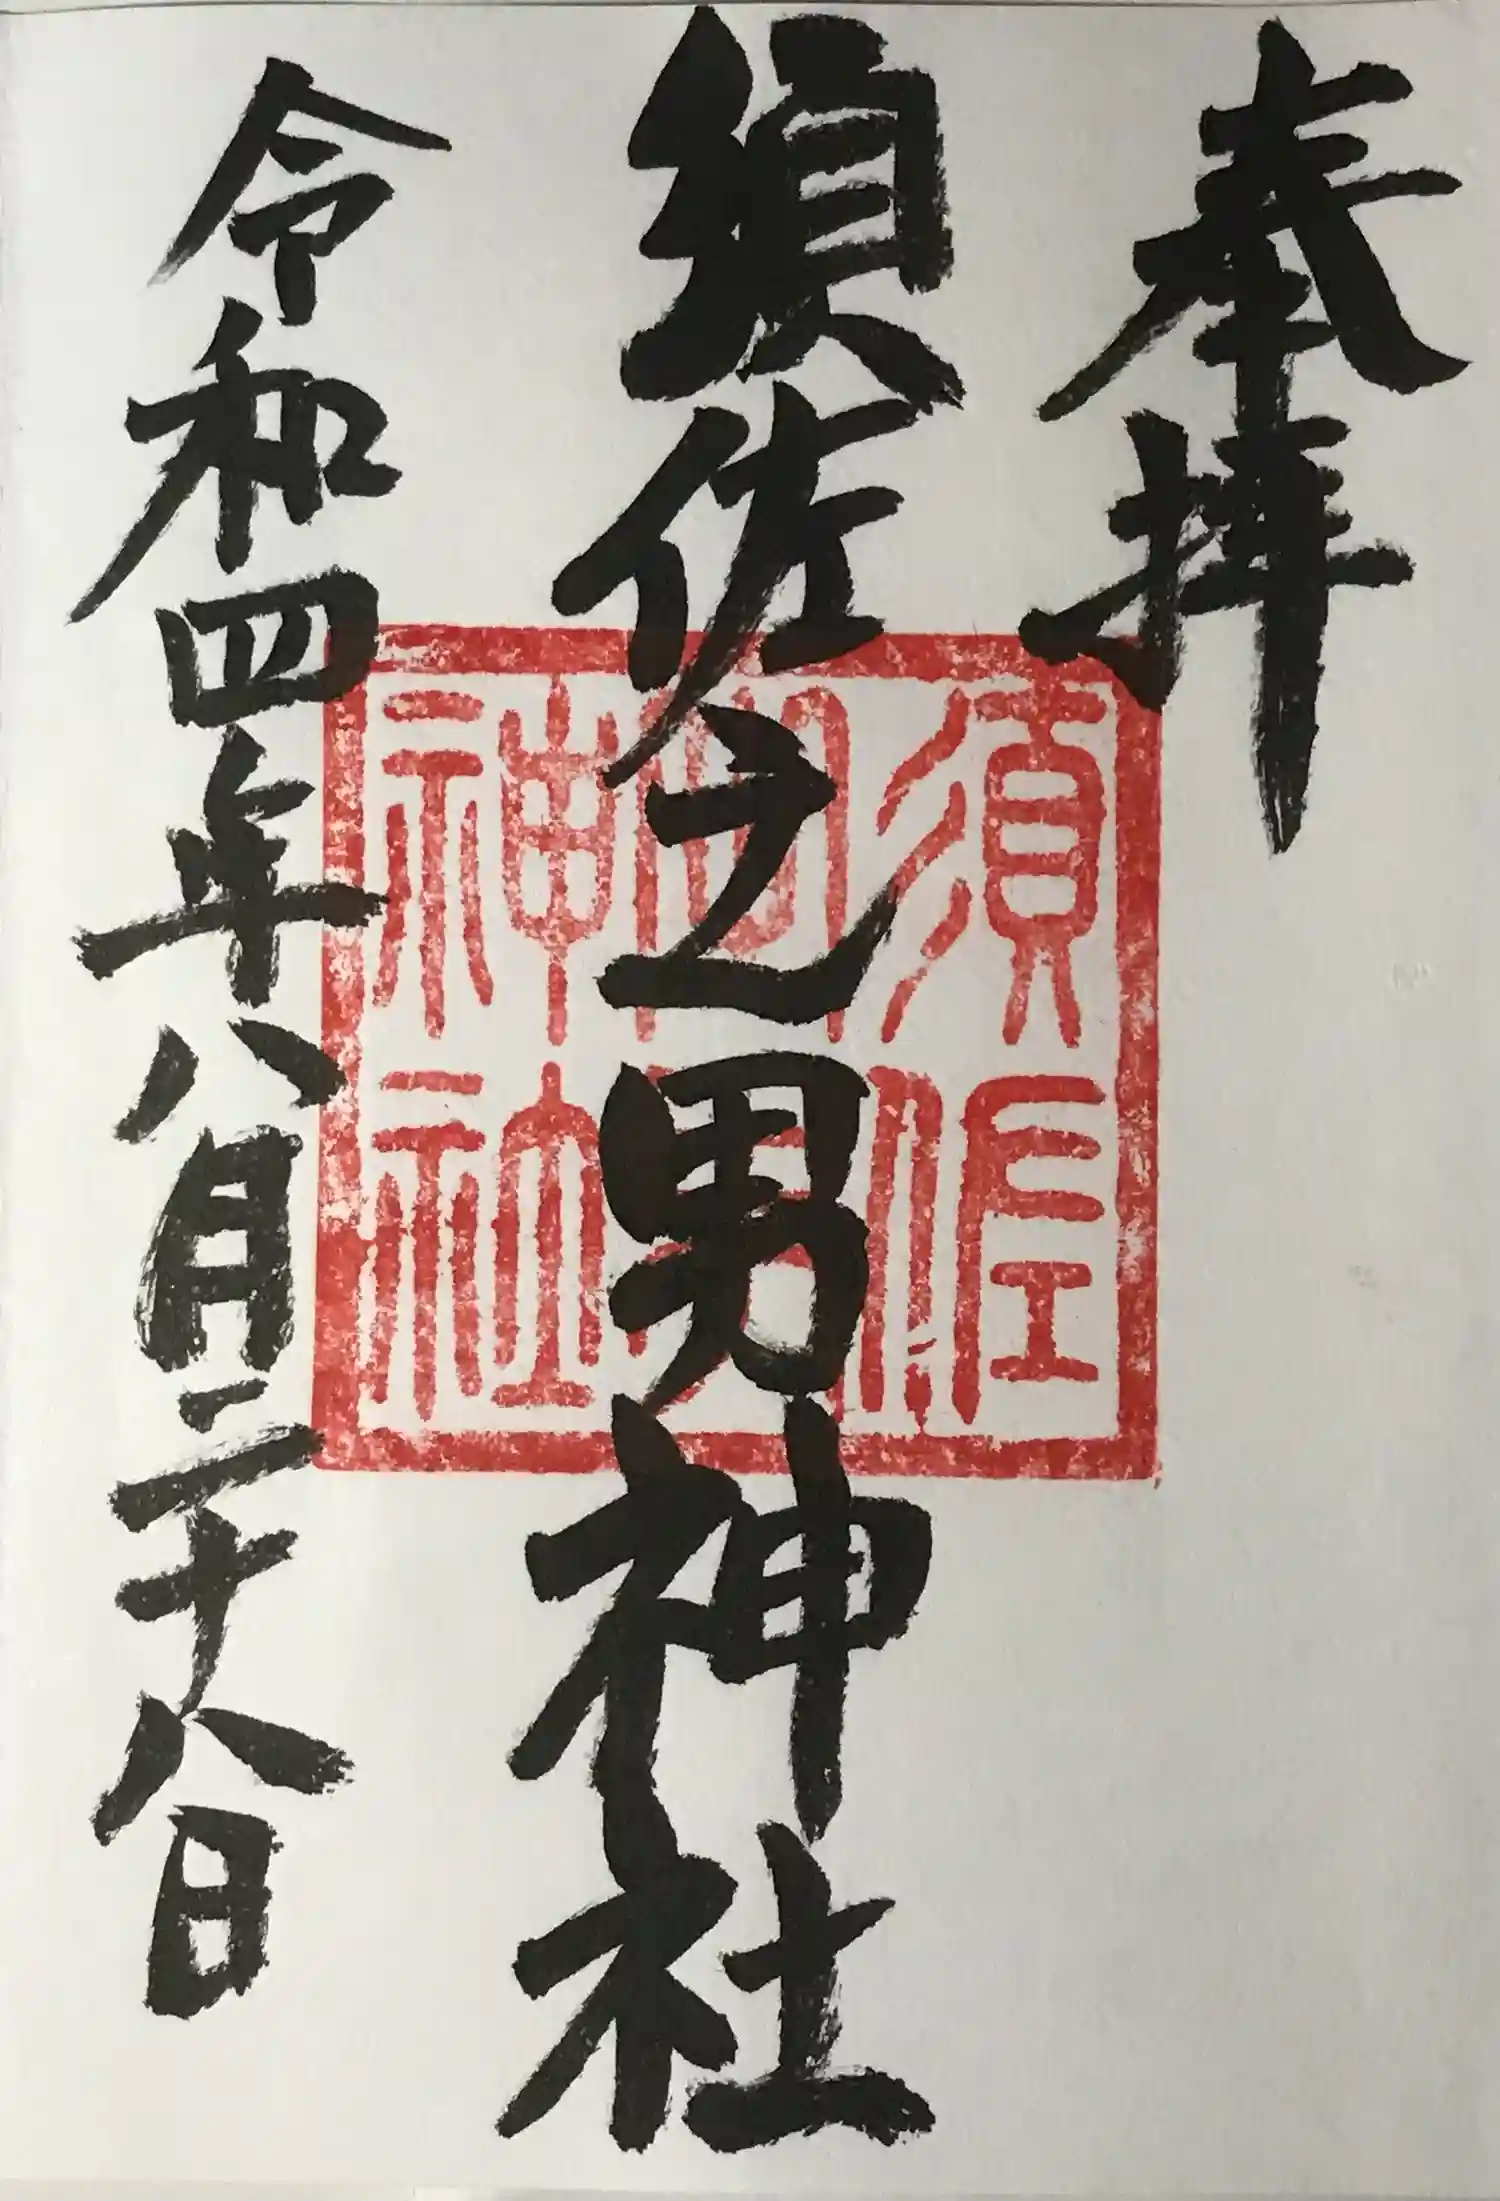 奉拝
須佐之男神社
令和四年八月二十八日
須佐
之男
神社